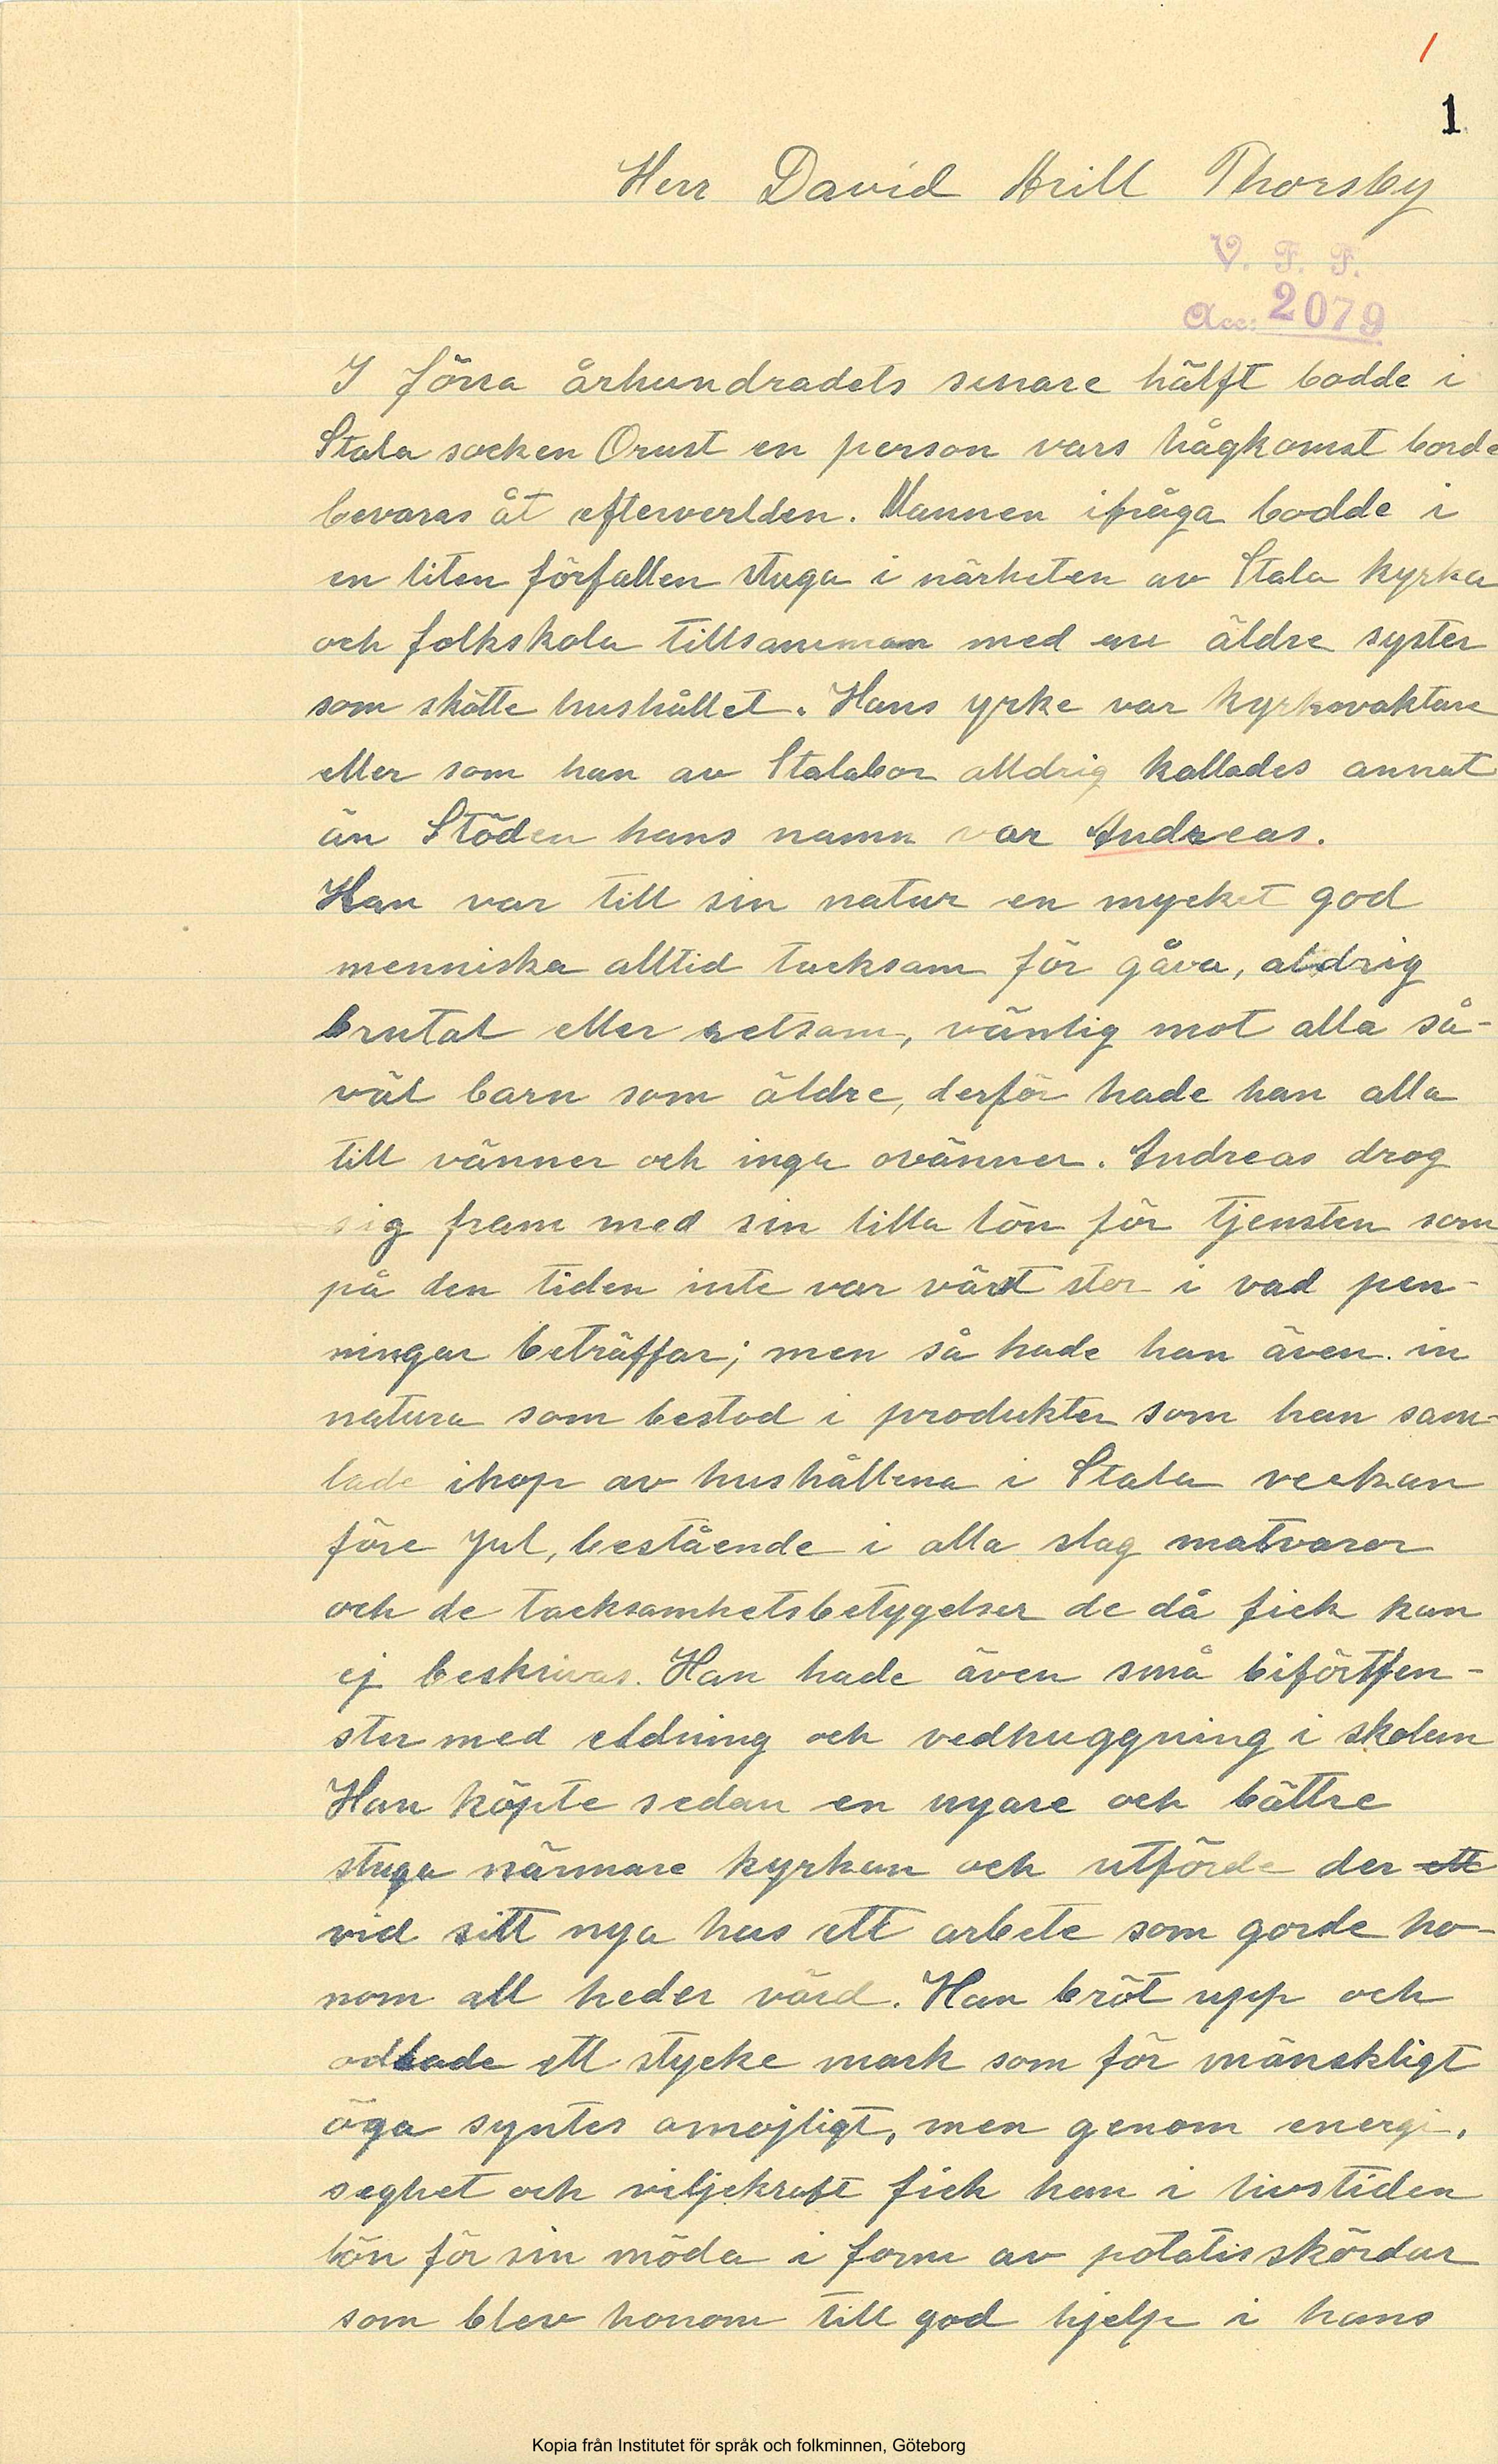 /
1
Herr David Arill Thorsby
V. F. F.
Acc: 2079
I förra århundradets senare hälft bodde i
Stala socken Orust en person vars hågkomst borde
bevaras åt efterverlden. Mannen ifråga bodde i
en liten förfallen stuga i närheten av Stala kyrka
och folkskola tillsamman med en äldre syster
som skötte hushållet. Hans yrke var kyrkovaktare
eller som han av Stalabor alldrig kallades annat
än Stöden hans namn var Andreas.
Han var till sin natur en mycket god
menniska alltid tacksam för gåva, aldrig
brutal eller retsam, vänlig mot alla så-
väl barn som äldre, derför hade han alla
till vänner och inga ovänner. Andreas drog
sig fram med sin lilla lön för tjensten som
på den tiden inte var värst stor i vad pen-
ningar beträffar; men så hade han även in
natura som bestod i produkter som han sam-
lade ihop av hushållena i Stala veckan
före Jul, bestående i alla slag matvaror
och de tacksamhetsbetygelser de då fick kan
ej beskrivas. Han hade även små biförtjen-
ster med eldning och vedhuggning i skolan
Han köpte sedan en nyare och bättre
stuga närmare kyrkan och utförde der ett
vid sitt nya hus ett arbete som gorde ho-
nom all heder värd. Han bröt upp och
odlade ett stycke mark som för mänskligt
öga syntes omöjligt, men genom energi,
seghet och viljekraft fick han i livstiden
lön för sin möda i form av potatisskördar
som blev honom till god hjelp i hans
Kopia från Institutet för språk och folkminnen, Göteborg